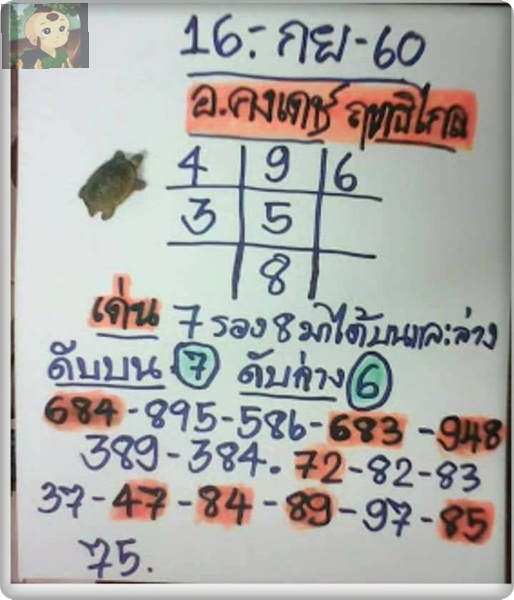 16:- กย-60
อ.คงเดช ฤทธิไกล
4 9 6
3 5
8
เด่น 7 รอง 8 มาได้บนและล่าง
ดับบน 7 ดับล่าง 6
684-895-586-683-948
389-384. 72-82-83
37-47-84-89-97-85
75.